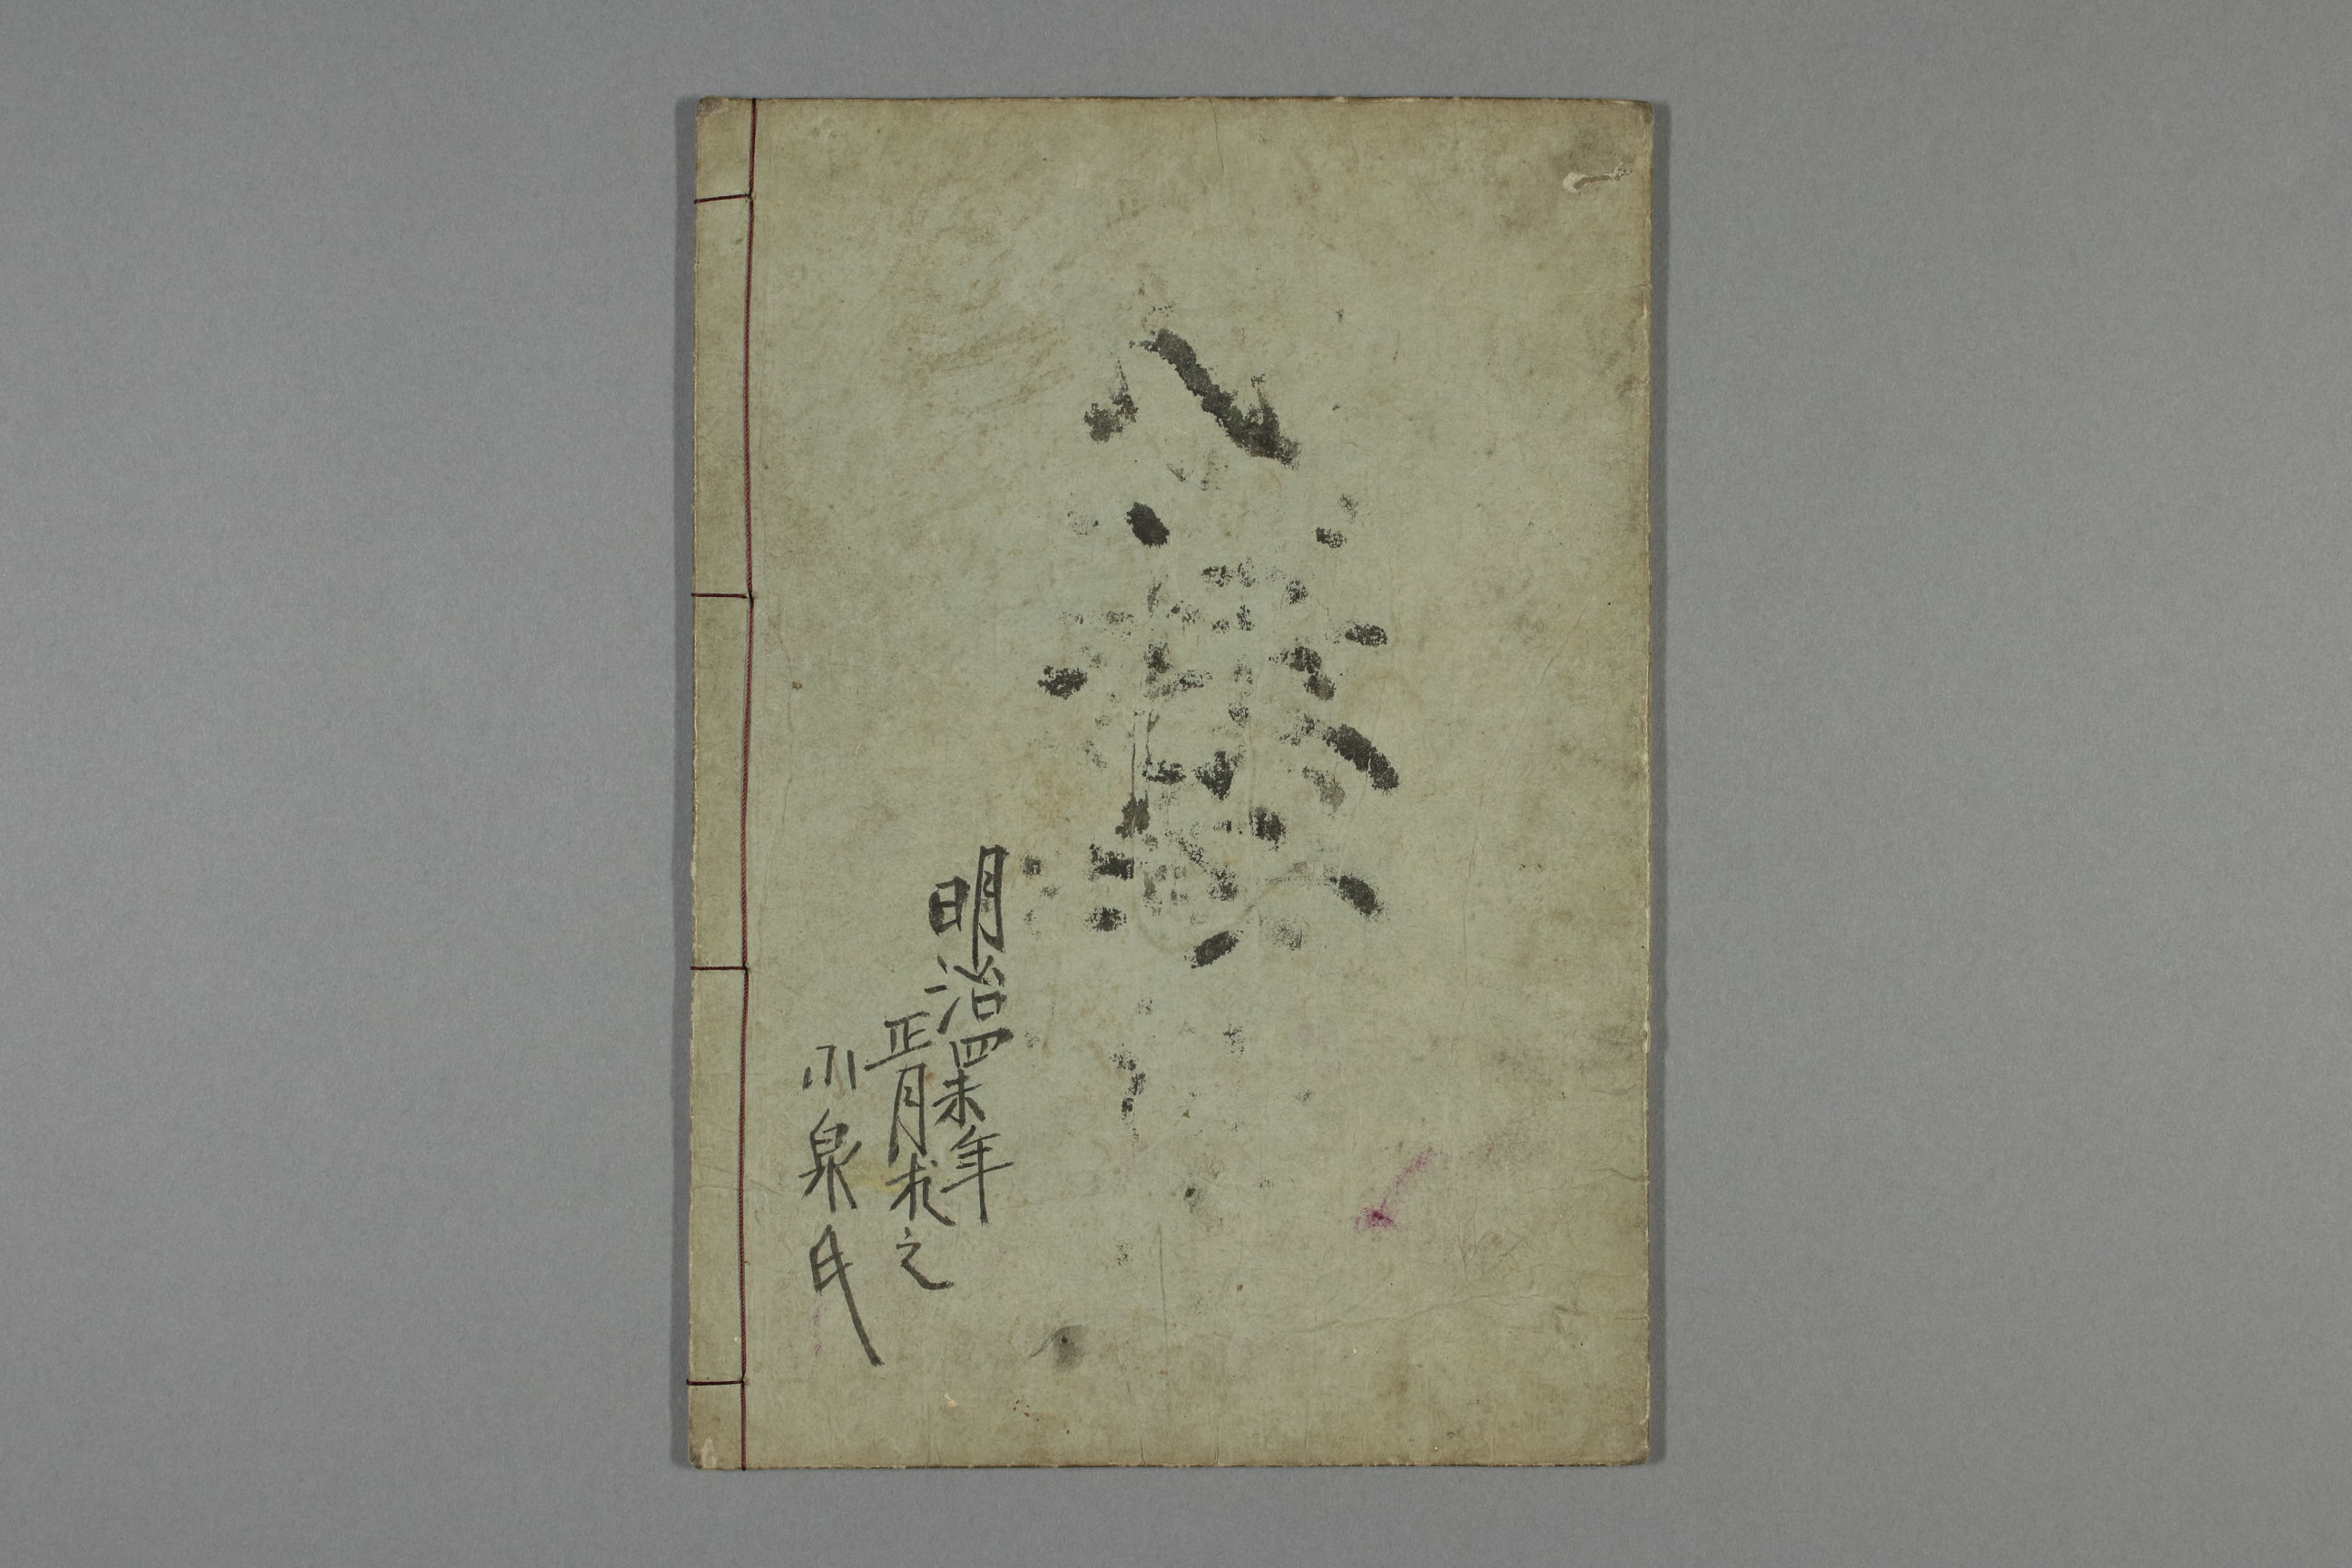 明治四未年
正月求之
小泉氏